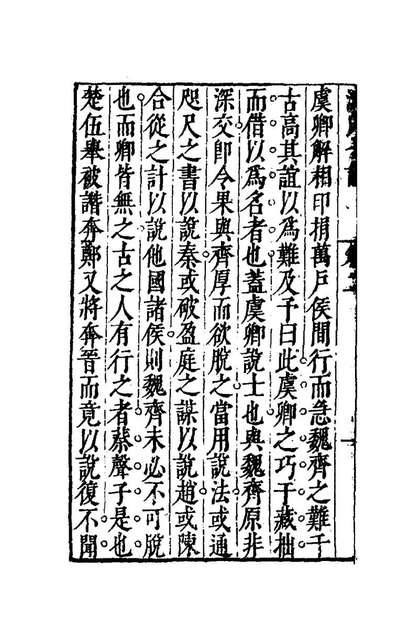 虞卿解相印捐萬戶侯間行而急魏齊之難千
古高其誼以為難及予曰此虞卿之巧于藏拙
而借以為名者也蓋虞卿說士也與魏齊原非
深交即令果與齊厚而欲脫之當用說法或通
咫尺之書以說秦或破盈庭之謀以說趙或陳
合從之計以說他國諸侯則魏齊未必不可脫
也而卿皆無之古之人有行之者蔡聲子是也
楚伍舉被譖奔鄭又將奔晉而竟以說復不聞